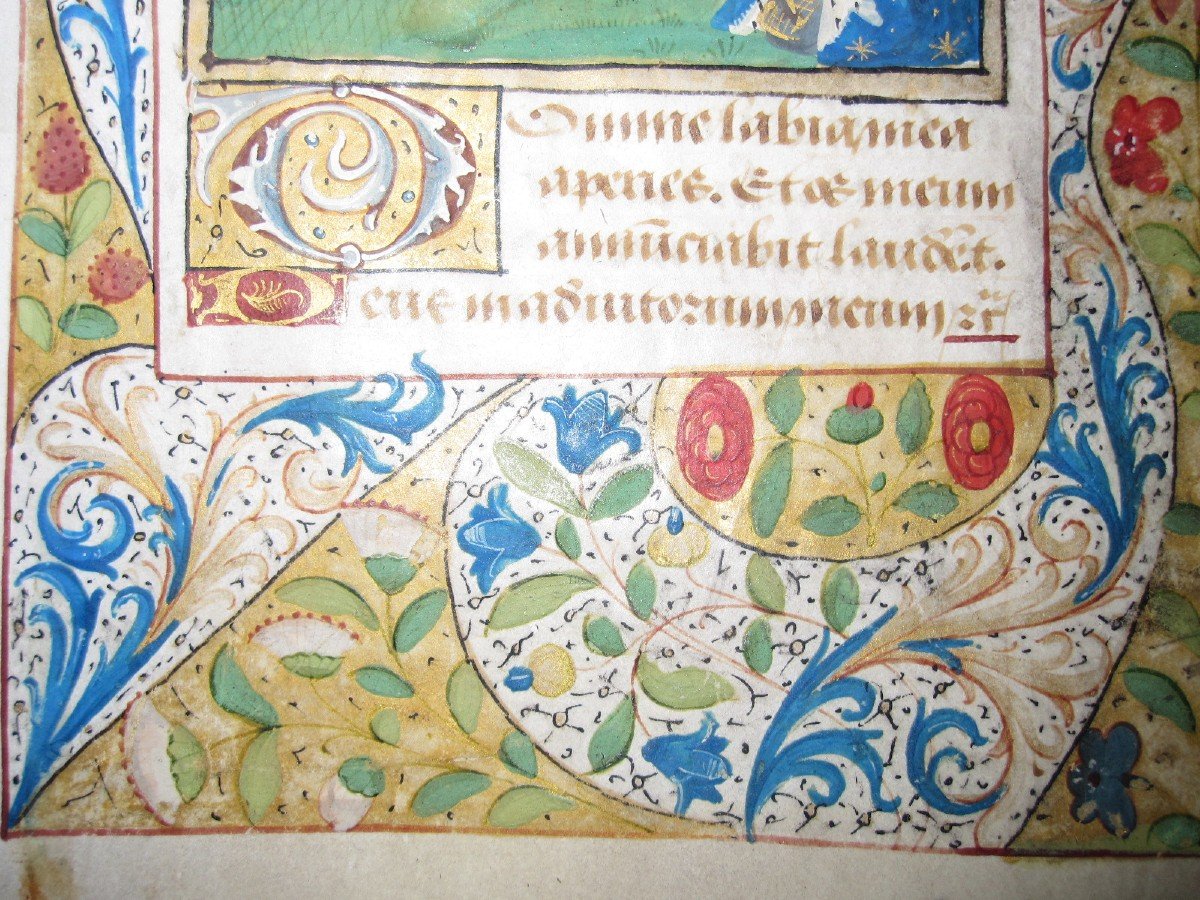 Domine labia mea
aperies. Et os meum
annūciabit laudē t.
Deus in adiutorium meum